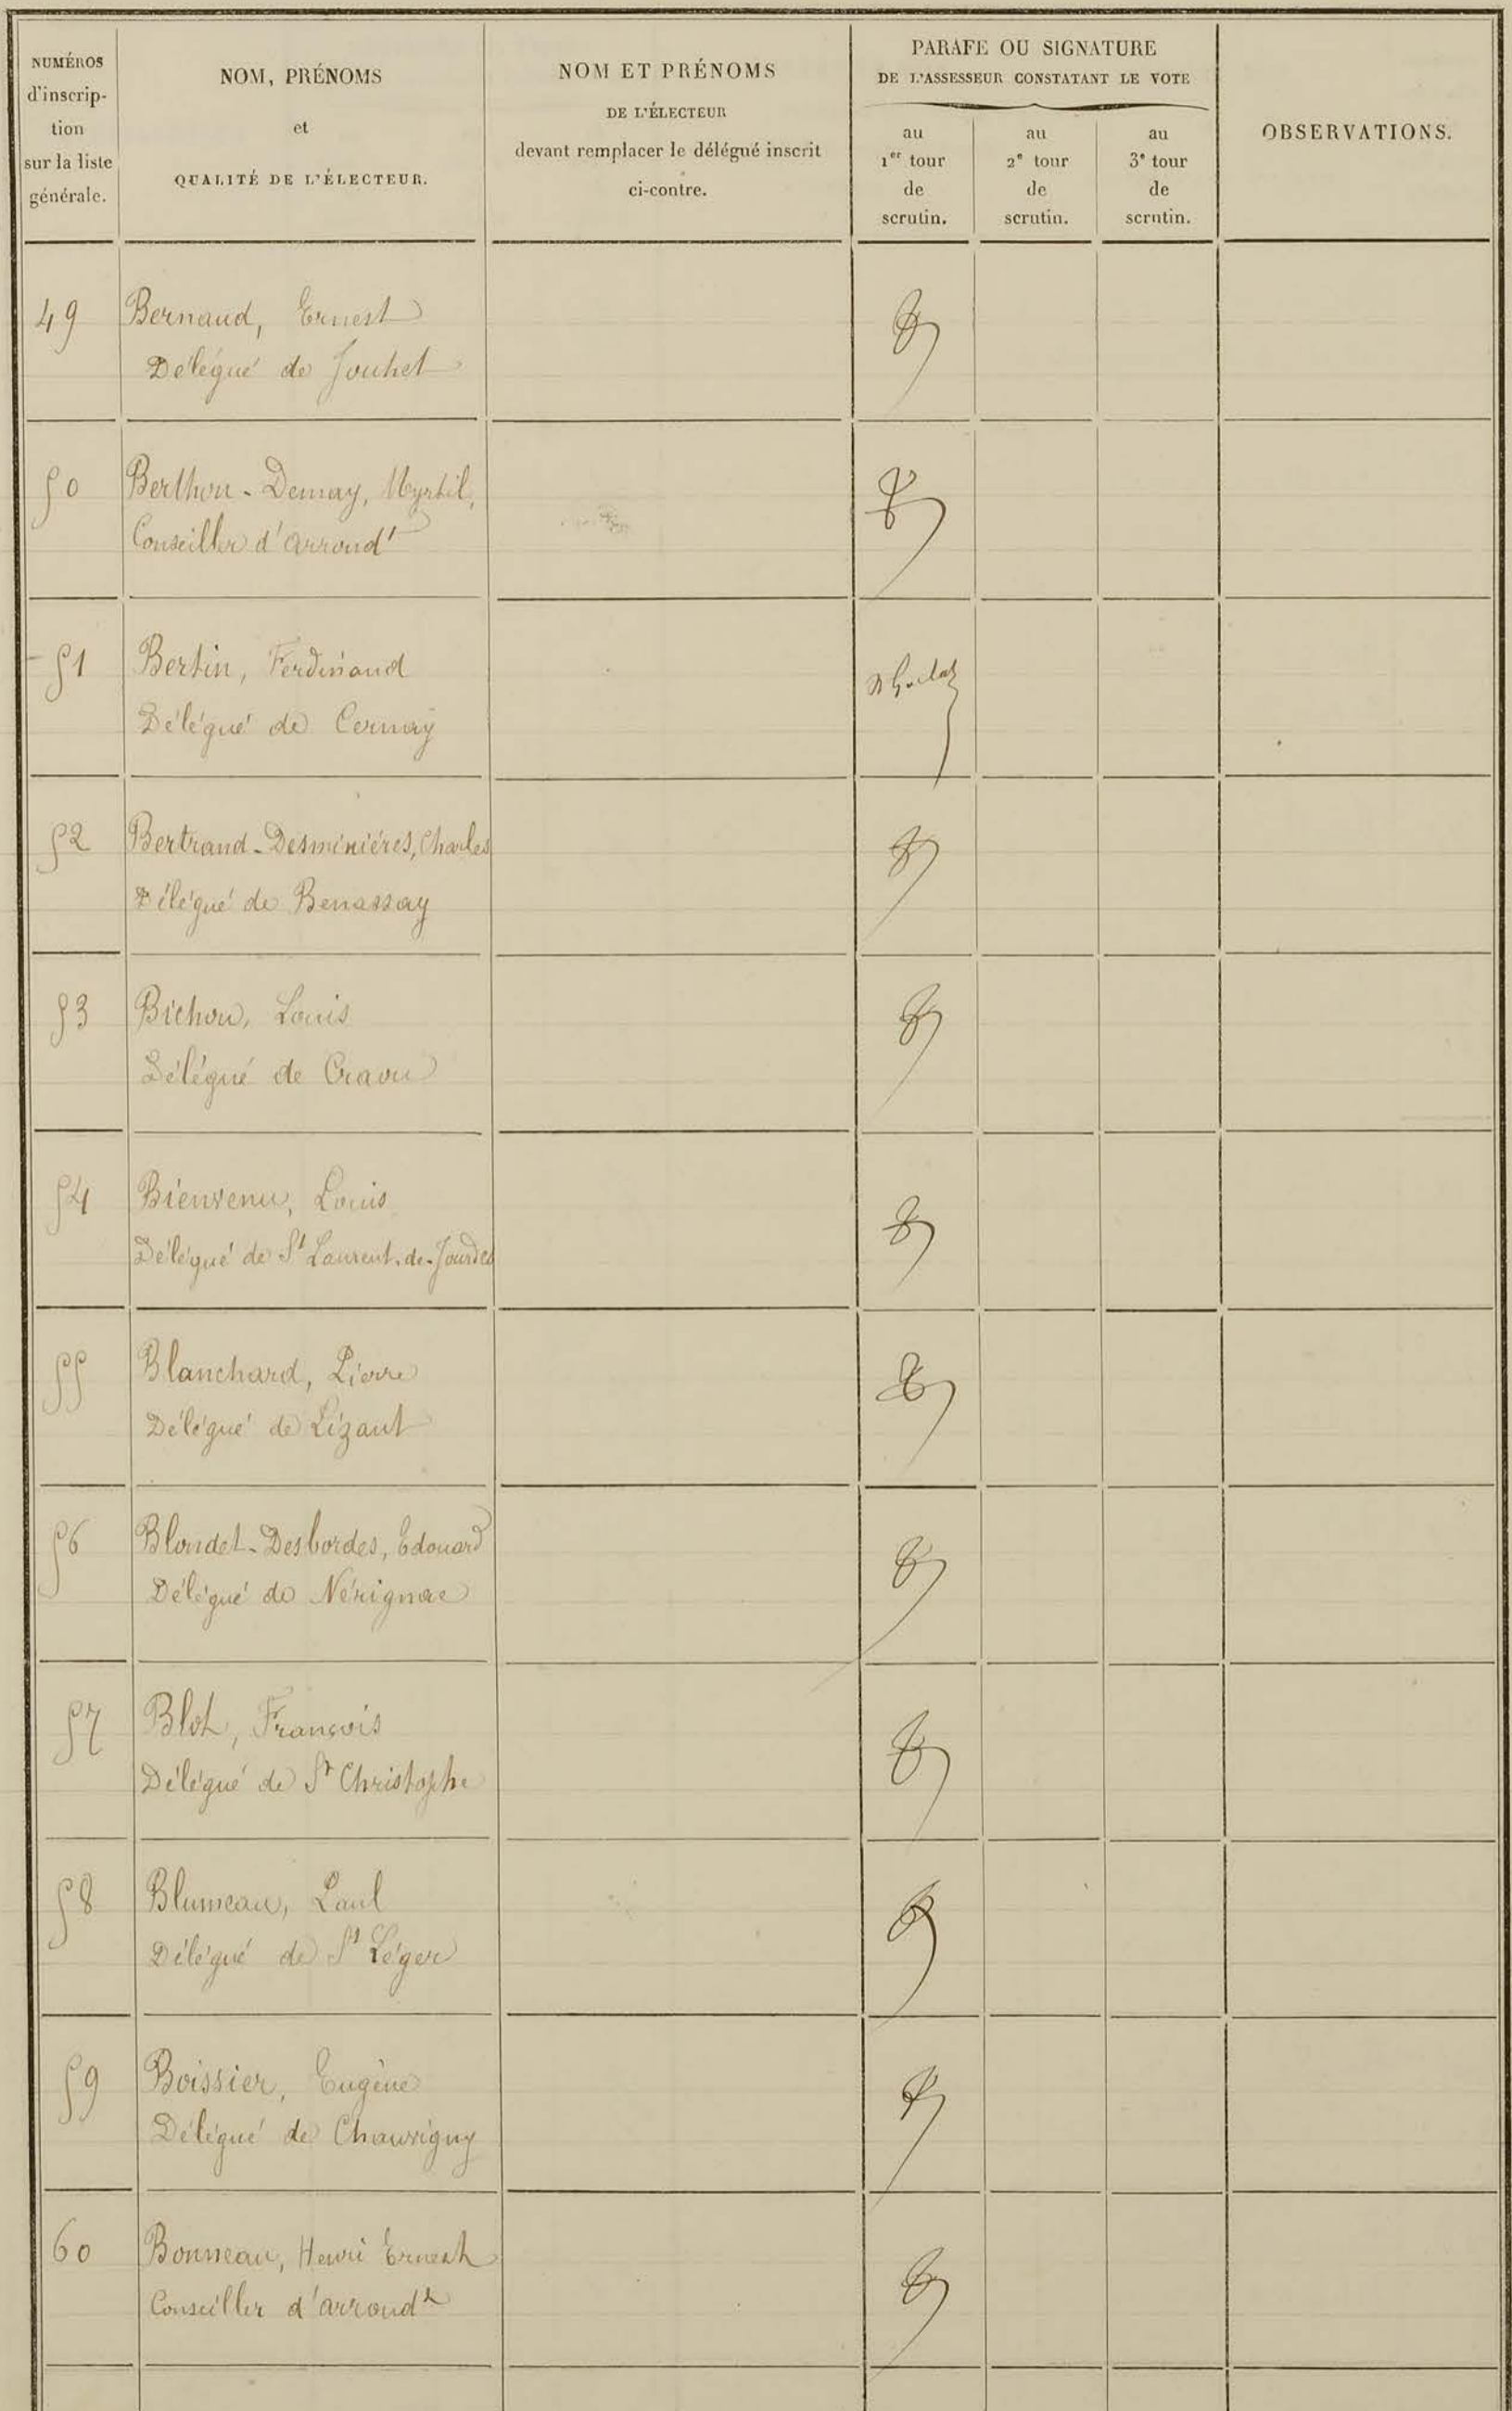 NUMÉROS
d'inscrip-
tion
sur la liste
générale.
NOM, PRÉNOMS
et
QUALITÉ DE L'ÉLECTEUR.
NOM ET PRÉNOMS
DE L'ÉLECTEUR
devant remplacer le délégué inscrit
ci-contre.
PARAFE OU SIGNATURE
DE L'ASSESSEUR CONSTATANT LE VOTE
au
1er tour
de
scrutin.
au
2e tour
de
scrutin.
au
3e tour
de
scrutin.
OBSERVATIONS.
49 Bernaud, Ernest
Délégué de Jouhet
50 Berthon-Demay, Myrtil,
Conseiller d'arrondt
51 Bertin, Ferdinand
Délégué de Cernay
52 Bertrand-Desminières, Charles
Délégué de Benassay
53 Bichon, Louis
Délégué de Craon
54 Bienvenu, Louis
Délégué de St Laurent-de-Jourdes
55 Blanchard, Pierre
Délégué de Lizant
56 Blondet-Desbordes, Edouard
Délégué de Nérignac
57 Blot, François
Délégué de St Christophe
58 Blumeau, Paul
Délégué de St Léger
59 Boissier, Eugène
Délégué de Chauvigny
60 Bonneau, Henri Ernest
Conseiller d'arrondt